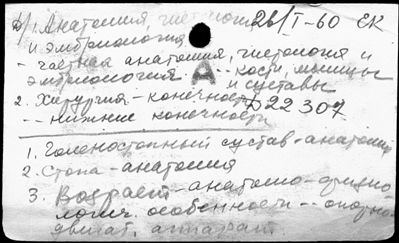 1. Анатомия, гистология 26/I-60 ЕК
и эмбриология
- частная анатомия, гистология и
эмбриология А -- кости, мышцы
и суставы
2. Хирургия - конечности Д22307
-- нижние конечности
1. Голеностопный сустав - анатомия
2. Стопа - анатомия
3. Возраст - анатомо-физио-
логич. особенности -- опорно-
двигат. аппарат